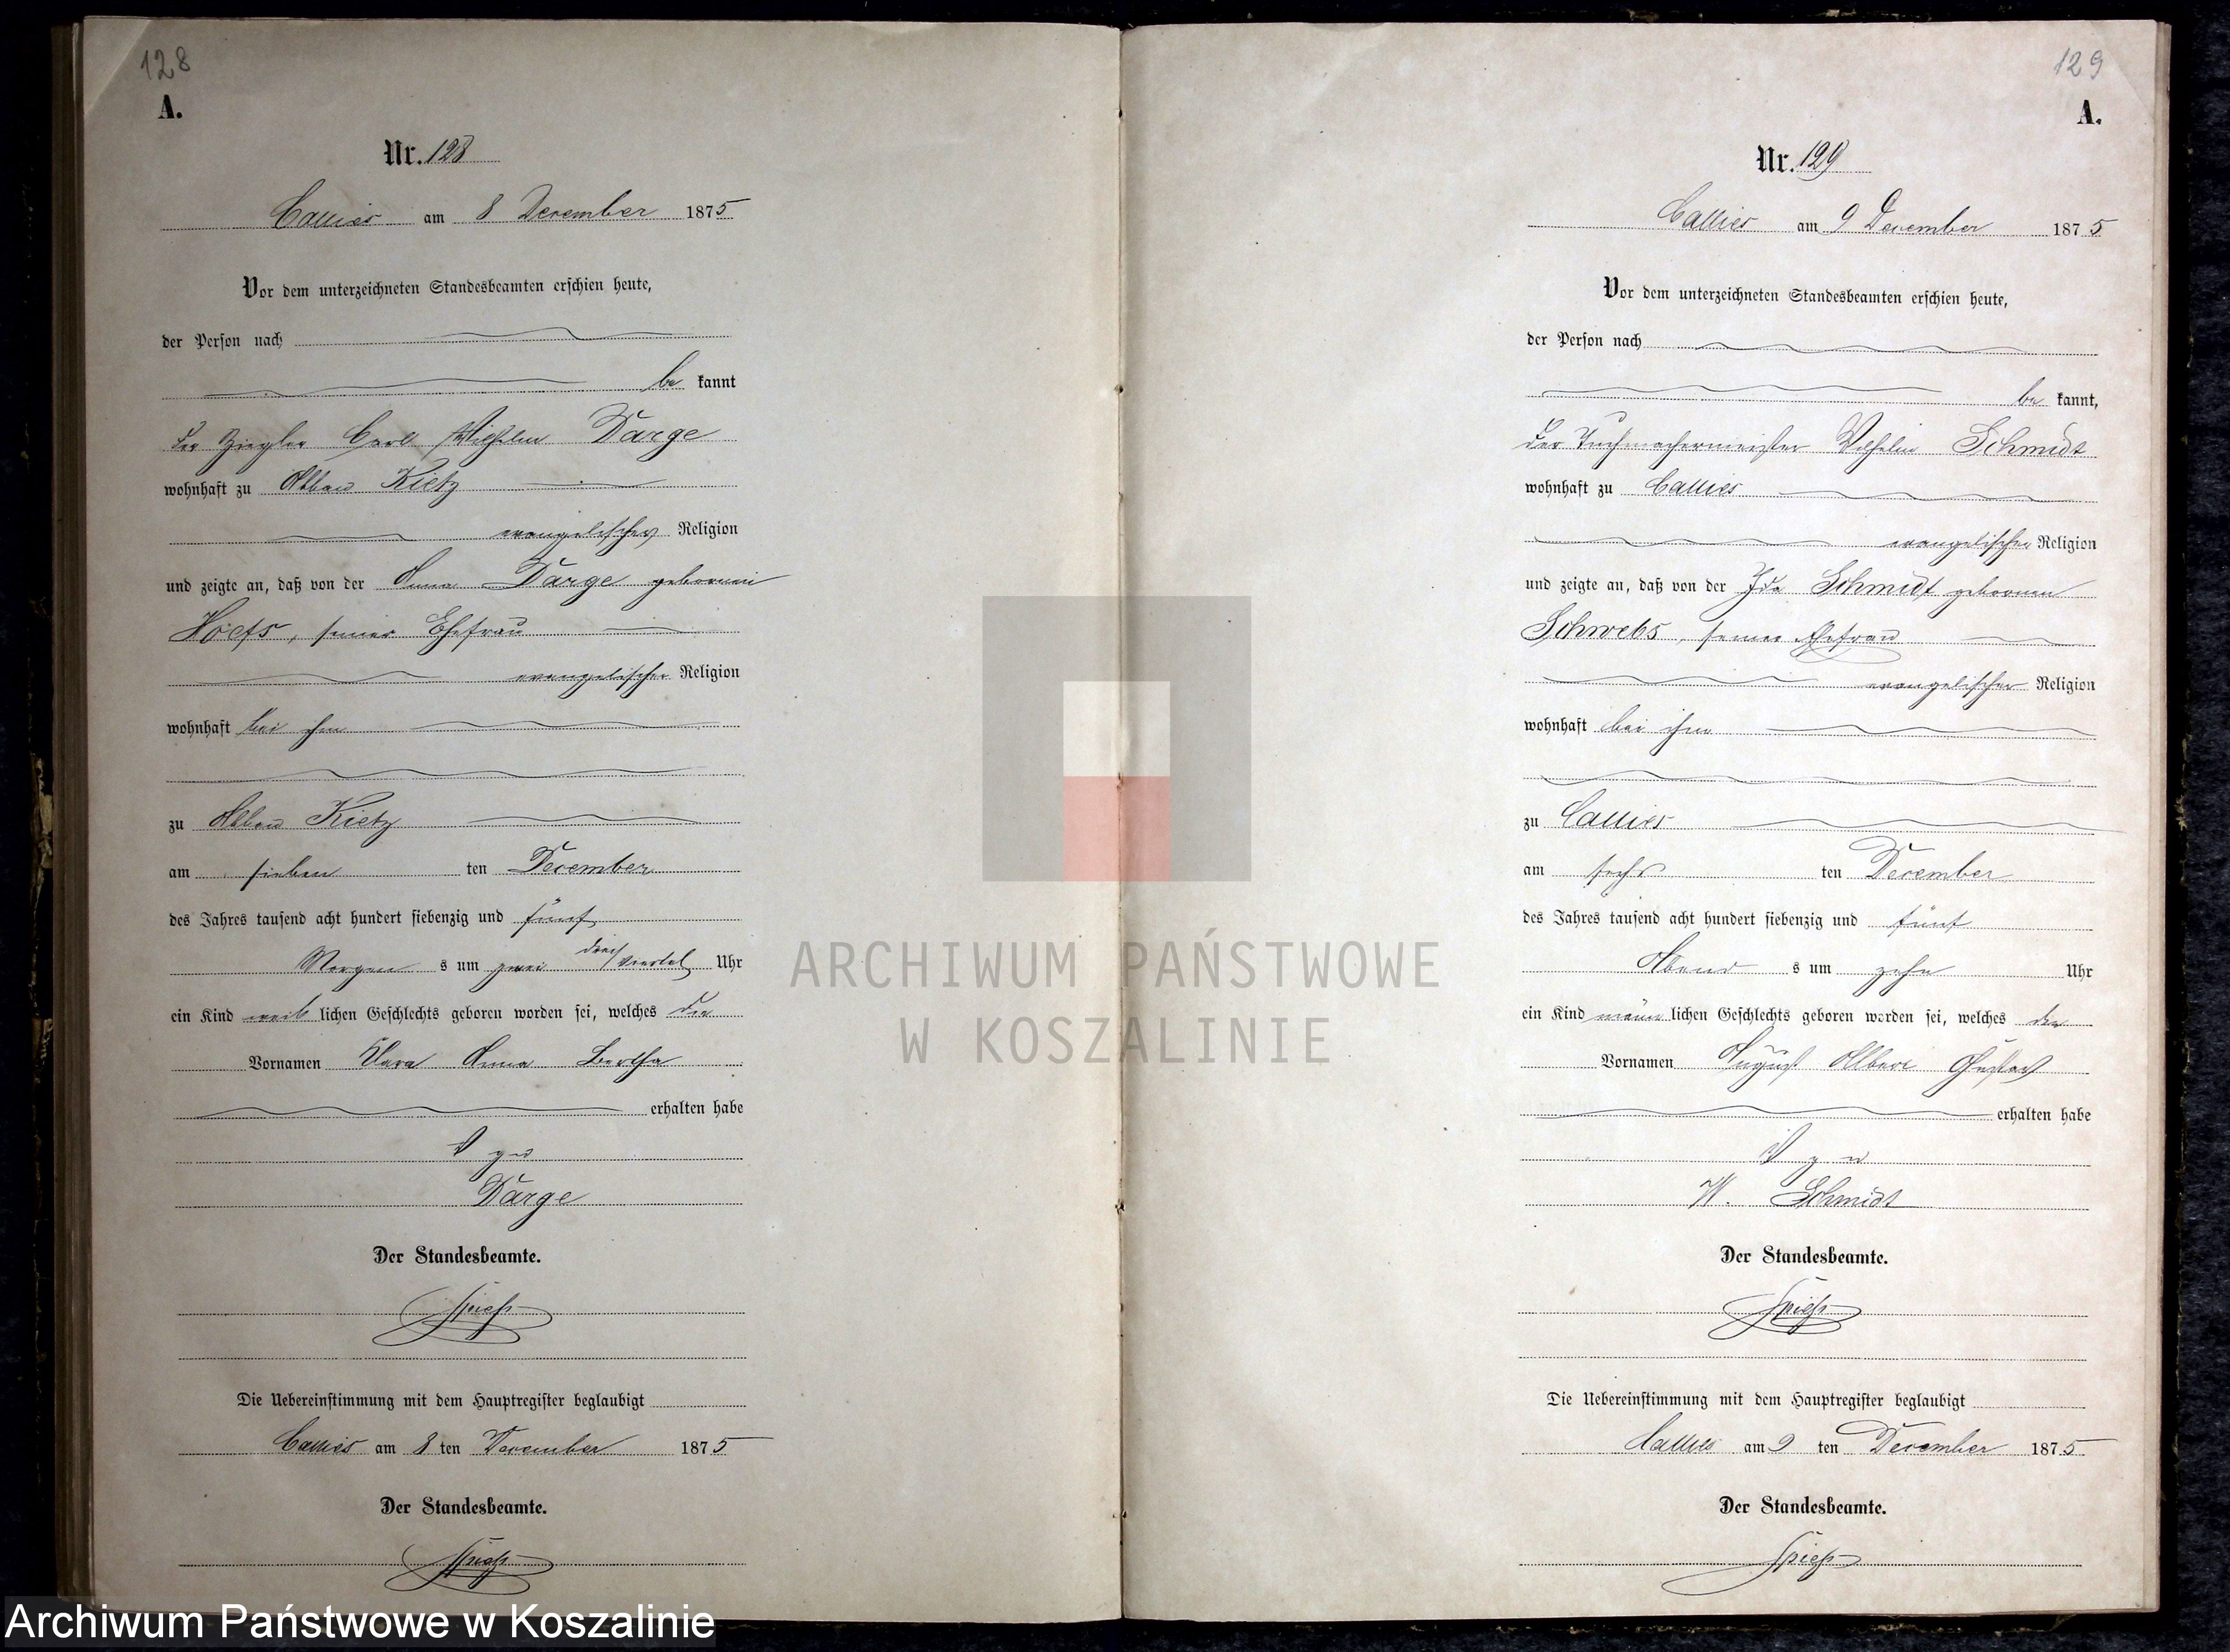 128
A.
Nr. 128
Callies am 8 December 1875
Vor dem unterzeichneten Standesbeamten erschien heute,
der Person nach
be kannt
der Ziegler Carl Wilhelm Darge
wohnhaft zu Abbau Kietz
evangelischer Religion
und zeigte an, daß von der Anna Darge geborenen
Hoefs, seiner Ehefrau
evangelischer Religion
wohnhaft bei ihm
zu Abbau Kietz
am sieben ten December
des Jahres tausend acht hundert siebenzig und fünf
Morgen s um zwei drei viertel Uhr
ein Kind weib lichen Geschlechts geboren worden sei, welches die
Vornamen Clara Anna Bertha
erhalten habe
V g u
Darge
Der Standesbeamte.
Spiess
Die Uebereinstimmung mit dem Hauptregister beglaubigt
Callies am 8 ten December 1875
Der Standesbeamte.
Spiess
129
A.
Nr. 129
Callies am 9 December 1875
Vor dem unterzeichneten Standesbeamten erschien heute,
der Person nach
be kannt,
der Tuchmachermeister Wilhelm Schmidt
wohnhaft zu Callies
evangelischer Religion
und zeigte an, daß von der Ida Schmidt geborenen
Schwebs, seiner Ehefrau
evangelischer Religion
wohnhaft bei ihm
zu Callies
am sechs ten December
des Jahres tausend acht hundert siebenzig und fünf
Abend s um zehn Uhr
ein Kind männ lichen Geschlechts geboren worden sei, welches die
Vornamen August Albert Gustav
erhalten habe
V g u
W. Schmidt
Der Standesbeamte.
Spiess
Die Uebereinstimmung mit dem Hauptregister beglaubigt
Callies am 9 ten December 1875
Der Standesbeamte.
Spiess
ARCHIWUM PAŃSTWOWE
W KOSZALINIE
Archiwum Państwowe w Koszalinie